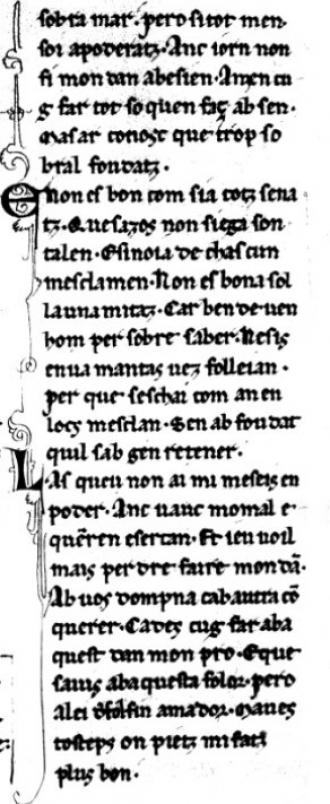 sobra mar. pero sitot men
soi apoderatz. Anc iorn non
fi mon dan abesien. Amen cu
g far tot so quen faç ab sen.
Mas ar conosc que trop so
bral foudatz.
E non es bon com sia totz sena
tz. Que sazos non siega son
talen. E sinoia de chascun
mesclamen. Non es bona sol
la una mitatz. Car ben deuen
hom per sobre saber. Nesis
en ua mantas uez folleian.
per que seschai com an en
locs mesclan. Sen ab foudat
quil sab gen retener.
Las queu non ai mi meteis en
poder. Anc uauc mo mal e
querēn e sercan. Et ieu uoil
mais perdre e faire mon dā.
Ab uos dompna cab autra cō
querer. Cades cug far ab a
quest dan mon pro. E que
sauis ab aquesta folor. pero
a lei d fol fin amador. Maues
tosteps on pietz mi faitz
plus bon.